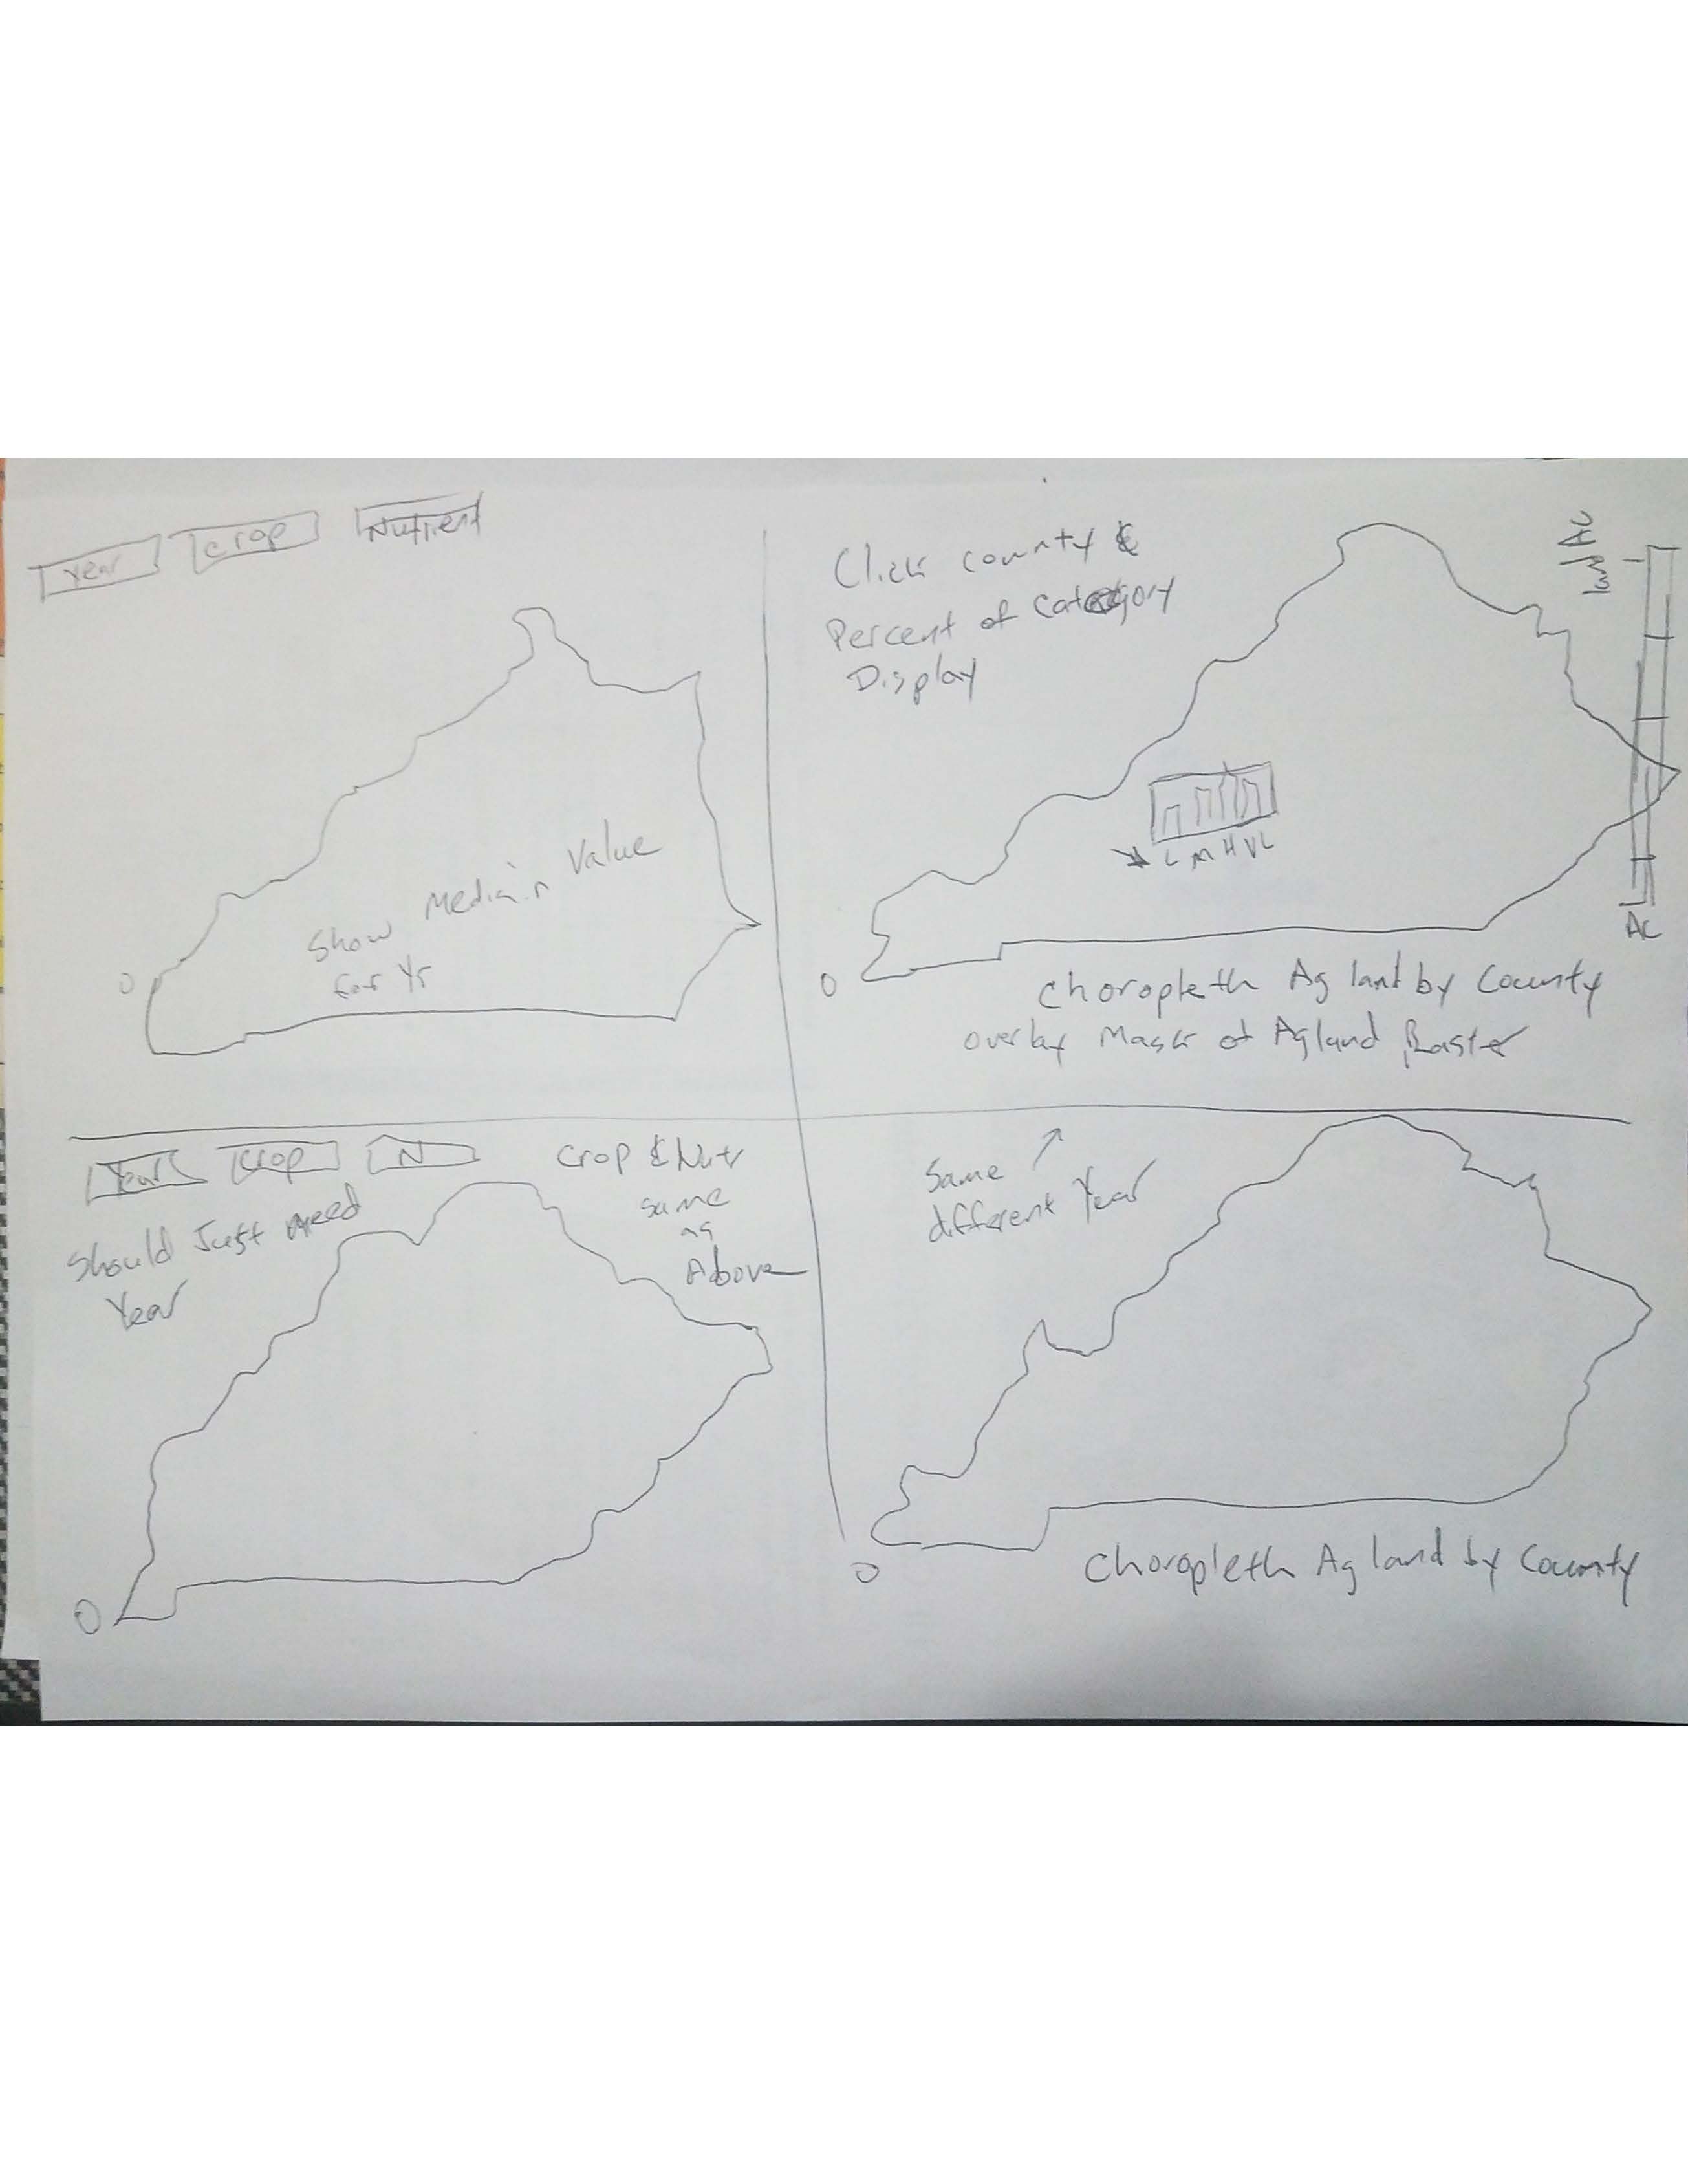 Year Crop Nutrient
Show Median Value
for Yr
O
Click county &
Percent of Category
Display
L M H VL
Ac
O
Choropleth Ag land by County
overlay Mask of Agland Raster
Year Crop N
Should Just need
Year
Crop & Nutr
same
as
Above
O
Same
different Year
O
Choropleth Ag land by County